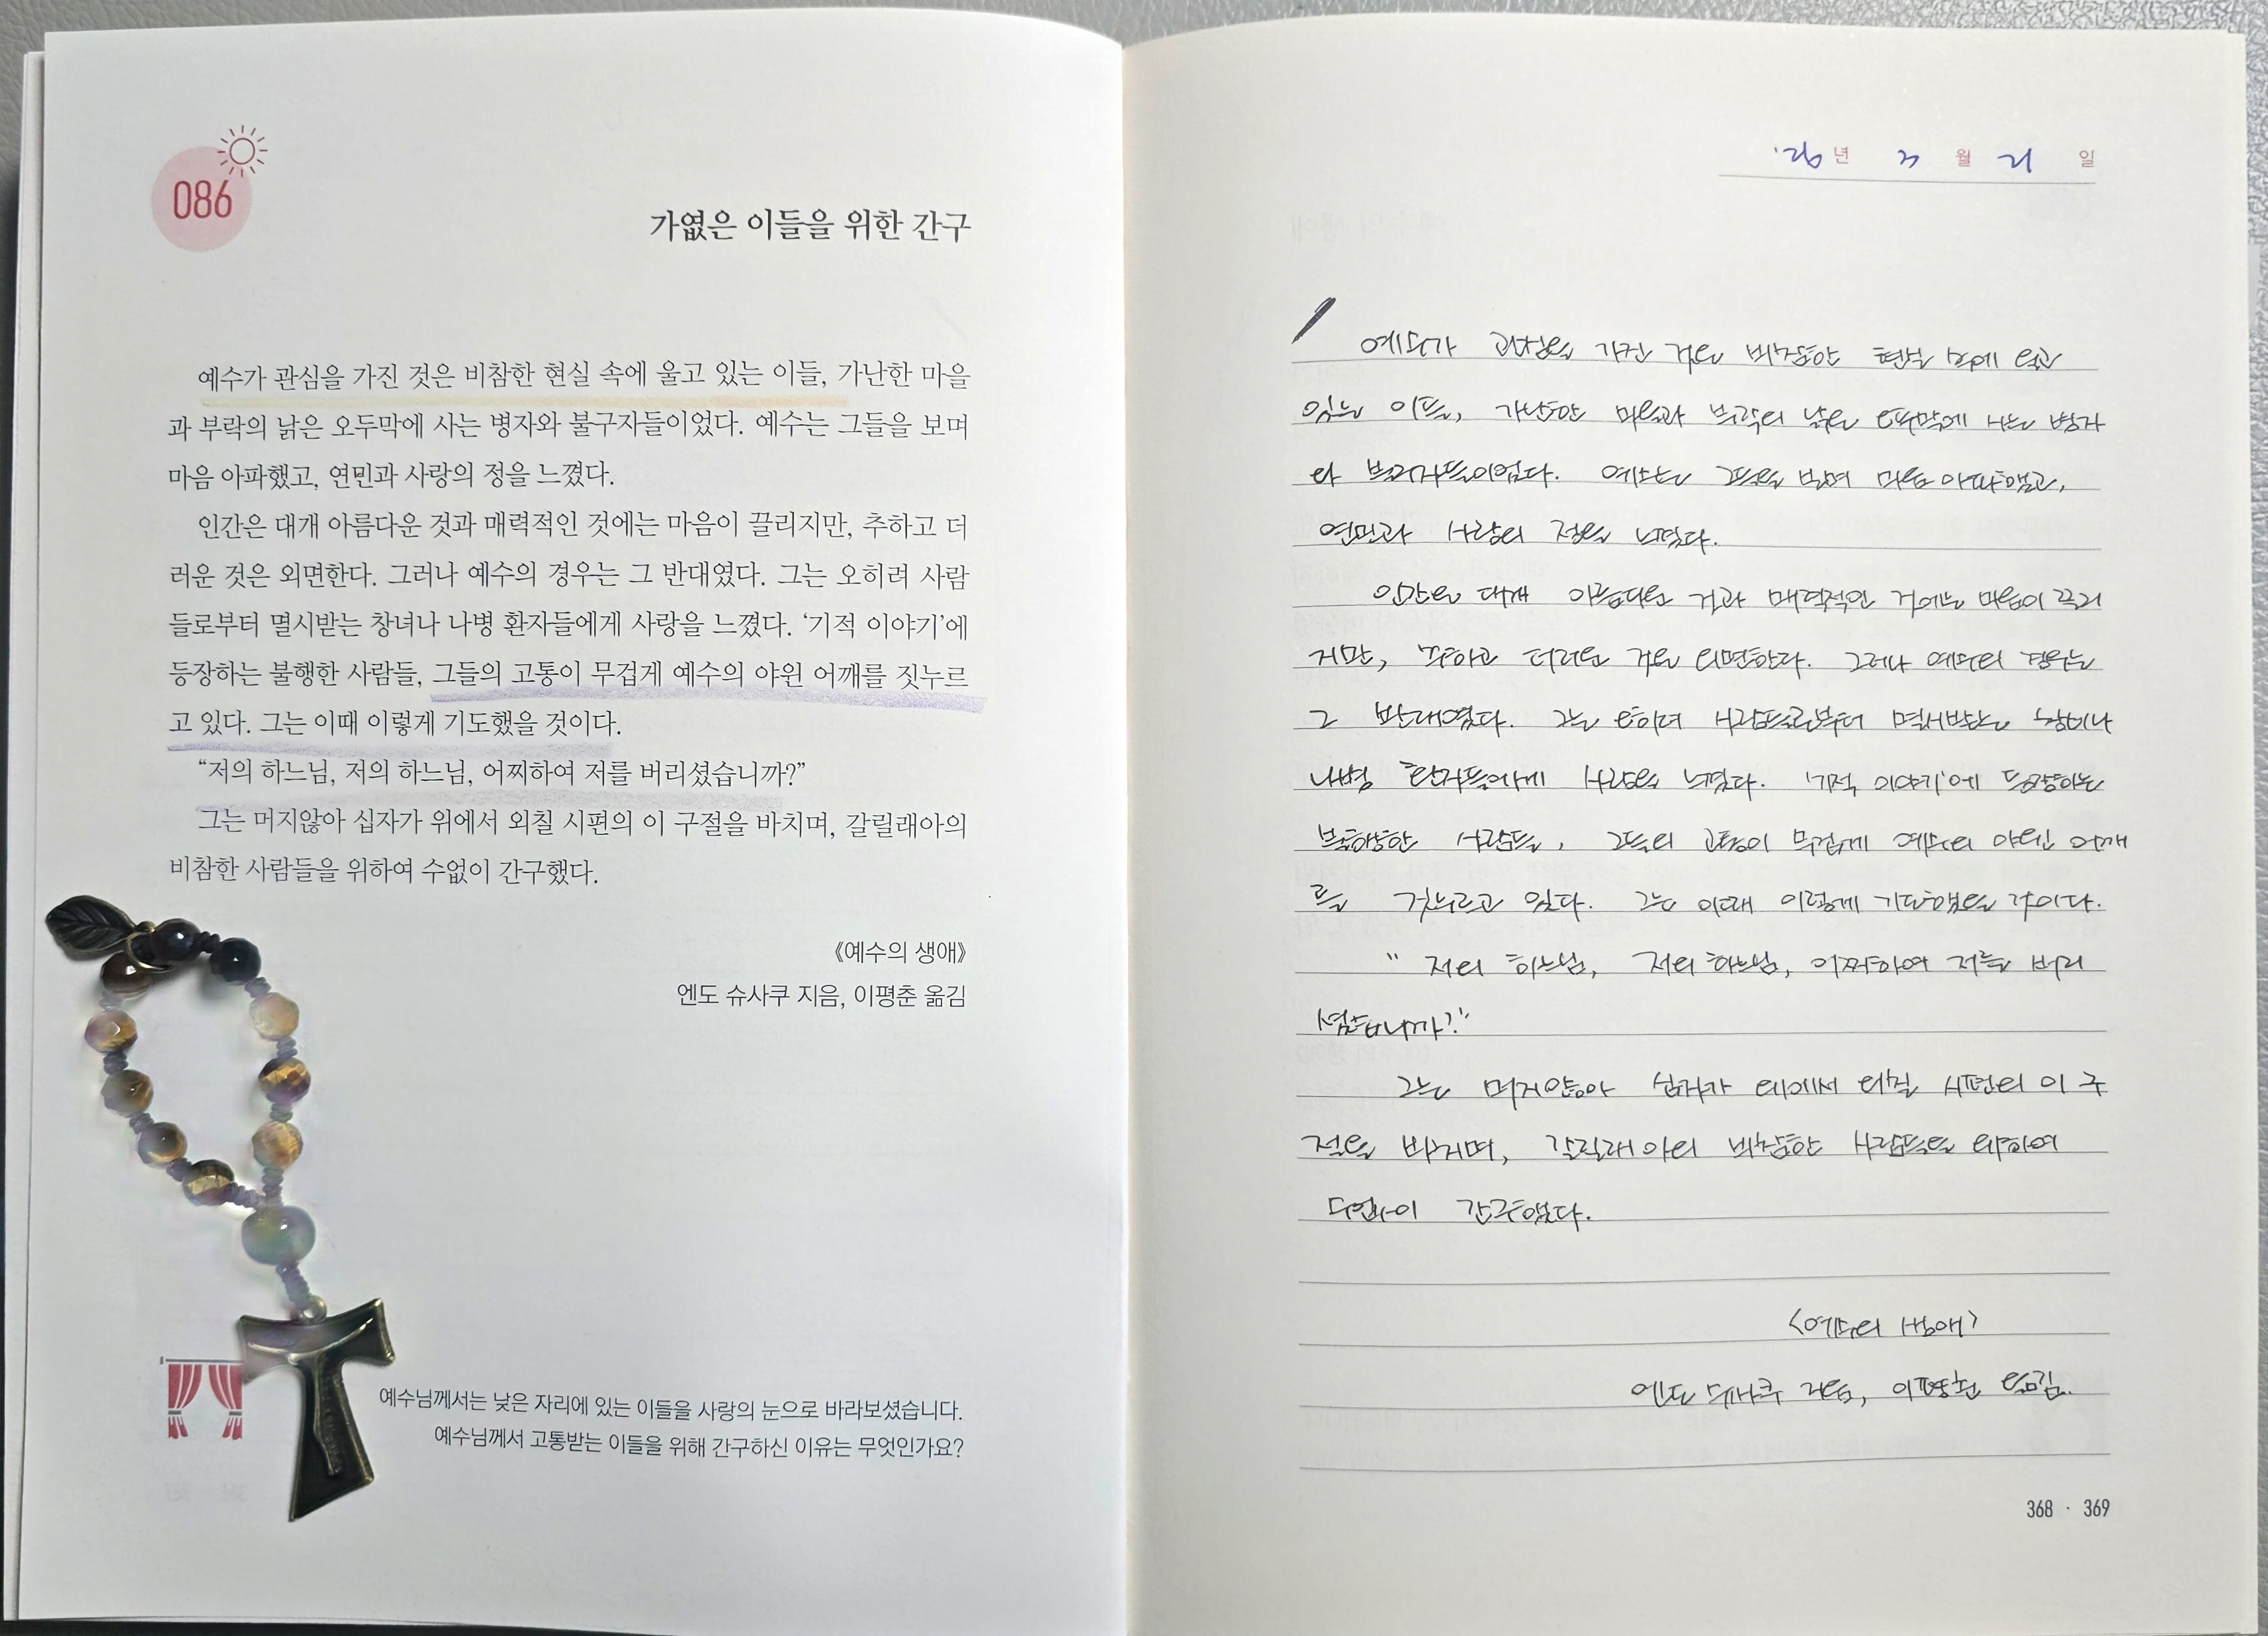 086
가엾은 이들을 위한 간구
예수가 관심을 가진 것은 비참한 현실 속에 울고 있는 이들, 가난한 마을
과 부락의 낡은 오두막에 사는 병자와 불구자들이었다. 예수는 그들을 보며
마음 아파했고, 연민과 사랑의 정을 느꼈다.
인간은 대개 아름다운 것과 매력적인 것에는 마음이 끌리지만, 추하고 더
러운 것은 외면한다. 그러나 예수의 경우는 그 반대였다. 그는 오히려 사람
들로부터 멸시받는 창녀나 나병 환자들에게 사랑을 느꼈다. ‘기적 이야기’에
등장하는 불행한 사람들, 그들의 고통이 무겁게 예수의 야윈 어깨를 짓누르
고 있다. 그는 이때 이렇게 기도했을 것이다.
“저의 하느님, 저의 하느님, 어찌하여 저를 버리셨습니까?”
그는 머지않아 십자가 위에서 외칠 시편의 이 구절을 바치며, 갈릴래아의
비참한 사람들을 위하여 수없이 간구했다.
《예수의 생애》
엔도 슈사쿠 지음, 이평춘 옮김
예수님께서는 낮은 자리에 있는 이들을 사랑의 눈으로 바라보셨습니다.
예수님께서 고통받는 이들을 위해 간구하신 이유는 무엇인가요?
'26년 3월 21일
예수가 관심을 가진 것은 비참한 현실 속에 울고
있는 이들, 가난한 마을과 부락의 낡은 오두막에 사는 병자
와 불구자들이었다. 예수는 그들을 보며 마음 아파했고,
연민과 사랑의 정을 느꼈다.
인간은 대개 아름다운 것과 매력적인 것에는 마음이 끌리
지만, 추하고 더러운 것은 외면한다. 그러나 예수의 경우는
그 반대였다. 그는 오히려 사람들로부터 멸시받는 창녀나
나병 환자들에게 사랑을 느꼈다. '기적 이야기'에 등장하는
불행한 사람들, 그들의 고통이 무겁게 예수의 야윈 어깨
를 짓누르고 있다. 그는 이때 이렇게 기도했을 것이다.
" 저의 하느님, 저의 하느님, 어찌하여 저를 버리
셨습니까?"
그는 머지않아 십자가 위에서 외칠 시편의 이 구
절을 바치며, 갈릴래아의 비참한 사람들을 위하여
수없이 간구했다.
<예수의 생애>
엔도 슈사쿠 지음, 이평춘 옮김.
368 · 369